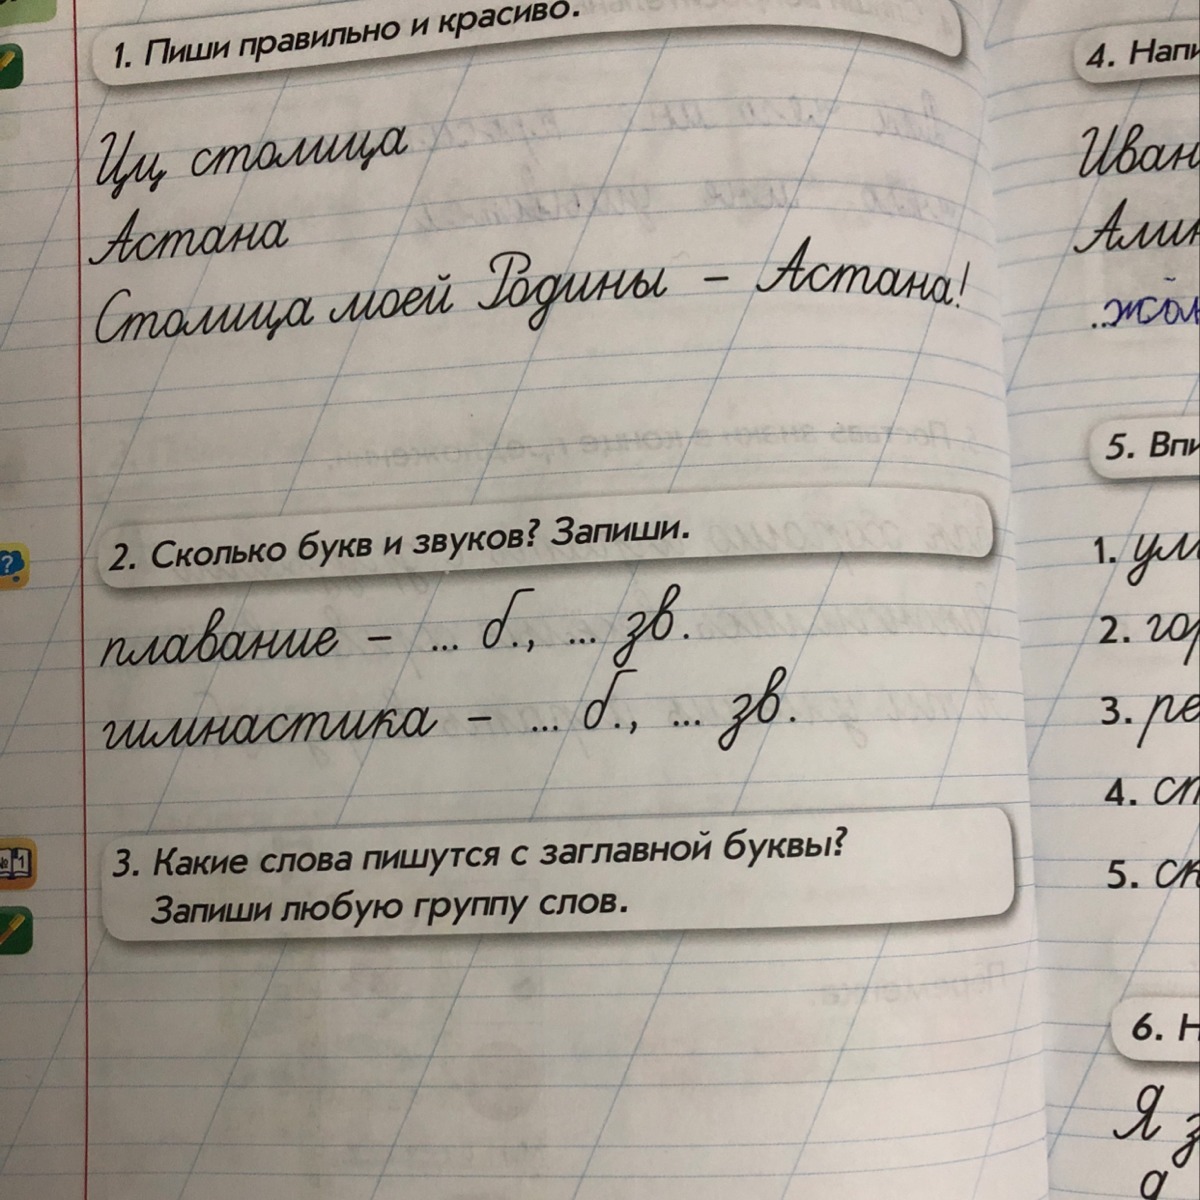 1. Пиши правильно и красиво.
Цц столица
Астана
Столица моей Родины – Астана!
2. Сколько букв и звуков? Запиши.
плавание – ... б., ... зв.
гимнастика – ... б., ... зв.
3. Какие слова пишутся с заглавной буквы?
Запиши любую группу слов.
№1
4. Напи
Иван
Алин
..жол
5. Впи
1. ум
2. гор
3. ре
4. сп
5. ск
6. Н
Я з